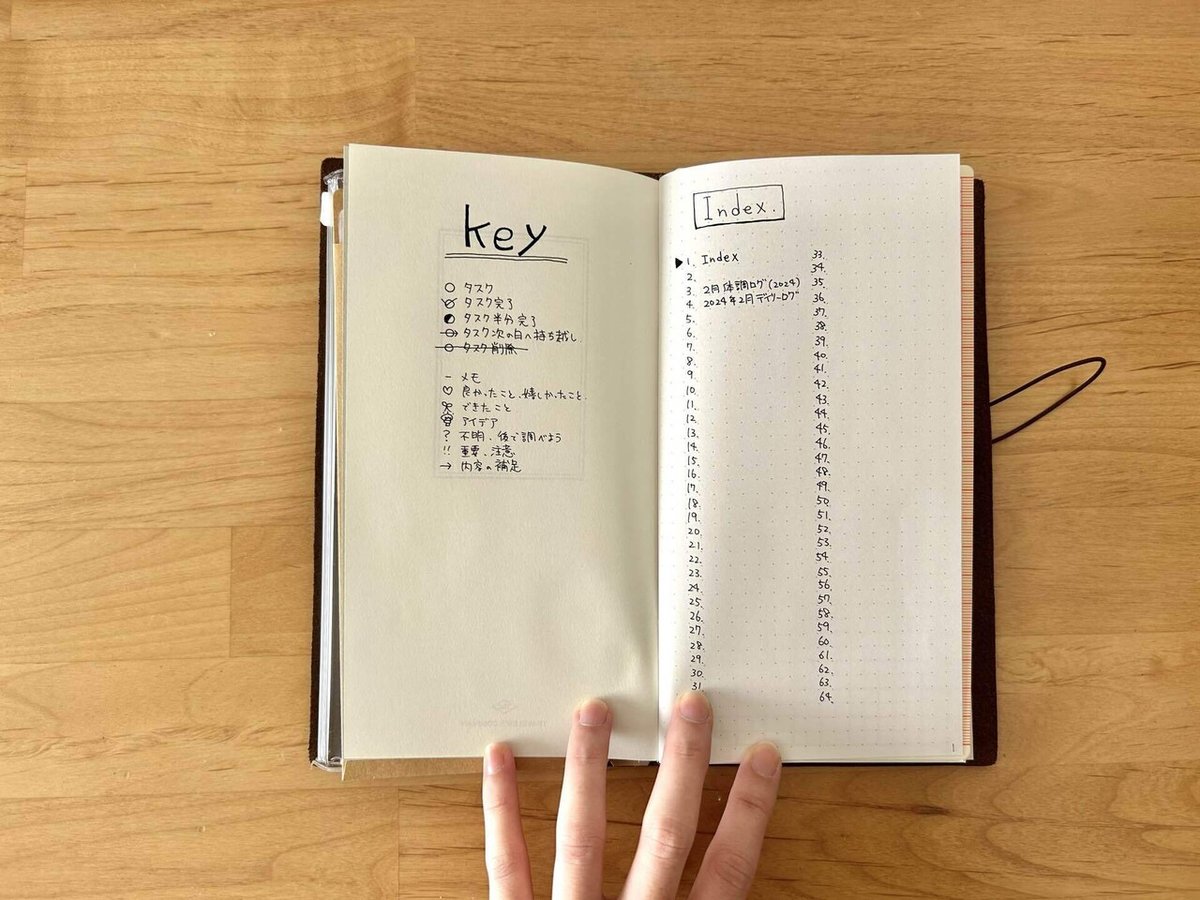 key
○ タスク
タスク完了
◐ タスク半分完了
タスク次の日へ持ち越し
タスク削除
- メモ
♡ 良かったこと、嬉しかったこと、
できたこと
アイデア
? 不明、後で調べよう
!! 重要、注意
→ 内容の補足
Index.
▶ 1. Index
2.
3. 2月体調ログ(2024)
4. 2024年2月デイリーログ
5.
6.
7.
8.
9.
10.
11.
12.
13.
14.
15.
16.
17.
18.
19.
20.
21.
22.
23.
24.
25.
26.
27.
28.
29.
30.
31
33.
34.
35.
36.
37.
38.
39.
40.
41.
42.
43.
44.
45.
46.
47.
48.
49.
50.
51.
52.
53.
54.
55.
56.
57.
58.
59.
60.
61.
62.
63.
64.
1